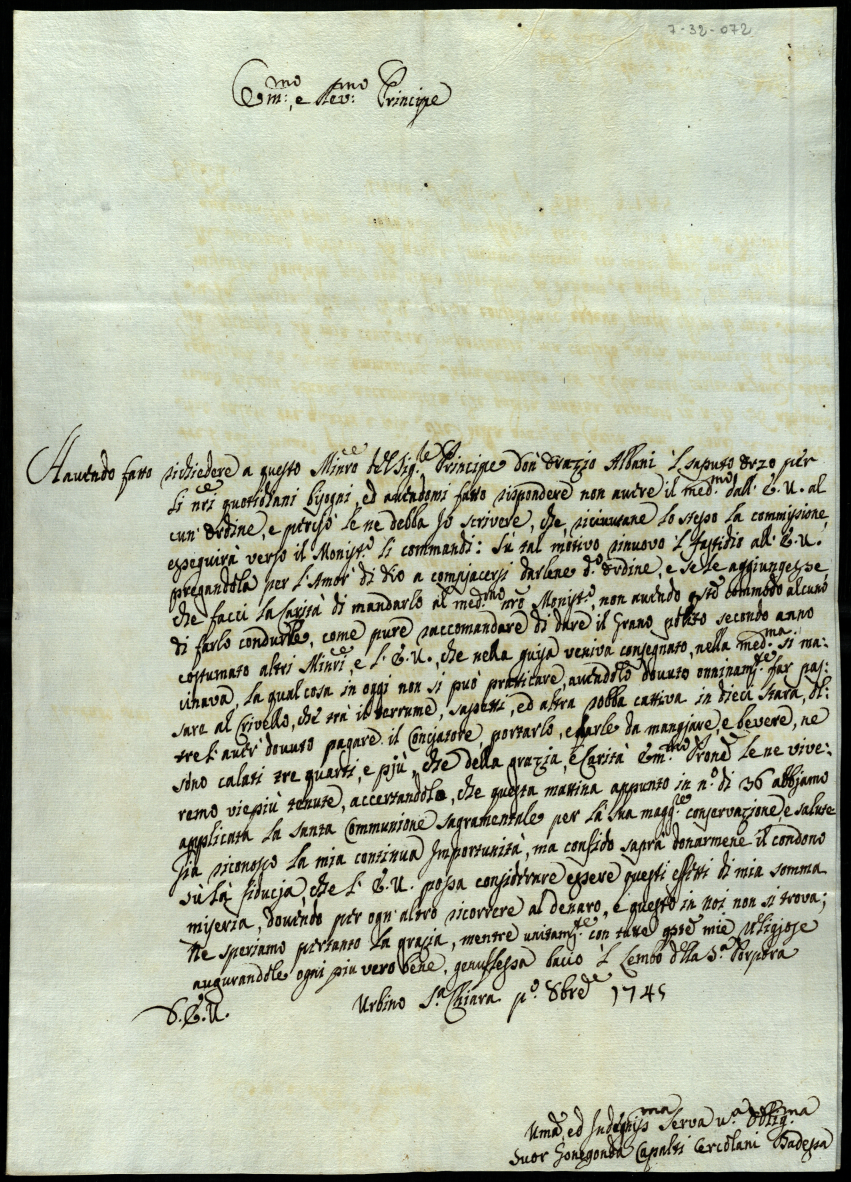 7-32-072
Em:mo, e Rev:mo Principe
Havendo fatto richiedere a questo Minro del Sig:le Principe Don Orazio Albani l saputo Orzo per
li nri quottidiani bisogni, ed avendomi fatto rispondere non avere il med:mo dall' E. V. al
cun' Ordine, e perciò le ne debba Io scrivere, che, ricevutane lo stesso la commissione,
esseguirà verso il Monist:o li commandi: Sù tal motivo rinuovo l fastidio all' E. V.
pregandola per l'Amor di Dio a compiacersi darlene d:o Ordine, e se le aggiungesse,
che facci la Carità di mandarlo al med:mo nro Monist:o, non avendo commodo alcuno
di farlo condurre, come pure raccomandare di dare il Grano polito secondo anno
costumato altri Minri, e l' E. V., che nella guisa veniva consegnato, nella med:ma si ma:
cinava, la qual cosa in oggi non si può pratticare, avendolo dovuto onninam:te far pas:
sare al Crivello, che trà il terrume, sassetti, ed altra robba cattiva in dieci stara, ol:
tre l' aver dovuto pagare il Conciatore portarlo, e darle da mangiare, e bevere, ne
sono calati tre quarti, e più, che della grazia, e Carità Em:mo Prone le ne vive:
remo viepiù tenute, accertandola, che questa mattina appunto in n:o di 36 abbiamo
applicata la santa Communione sagramentale per la sua magg:re conservazione, e salute
Già riconosco la mia continua Importunità, ma confido saprà donarmene il condono
sù la fiducia, che l' E. V. possa considerare essere questi effetti di mia somma
miseria, dovendo per ogn' altro ricorrere al denaro, e questo in noi non si trova;
Ne speriamo pertanto la grazia, mentre unitam:te con tutte qste mie Religiose
augurandole ogni più vero bene, genuflessa bacio l Lembo della S:a Porpora
D. E. V. Urbino S:a Chiara p:o 8bre 1745
Uma, ed Indegnis:ma Serva v:a Obblig:ma
Suor Conegonda Capalti Ercolani Badessa